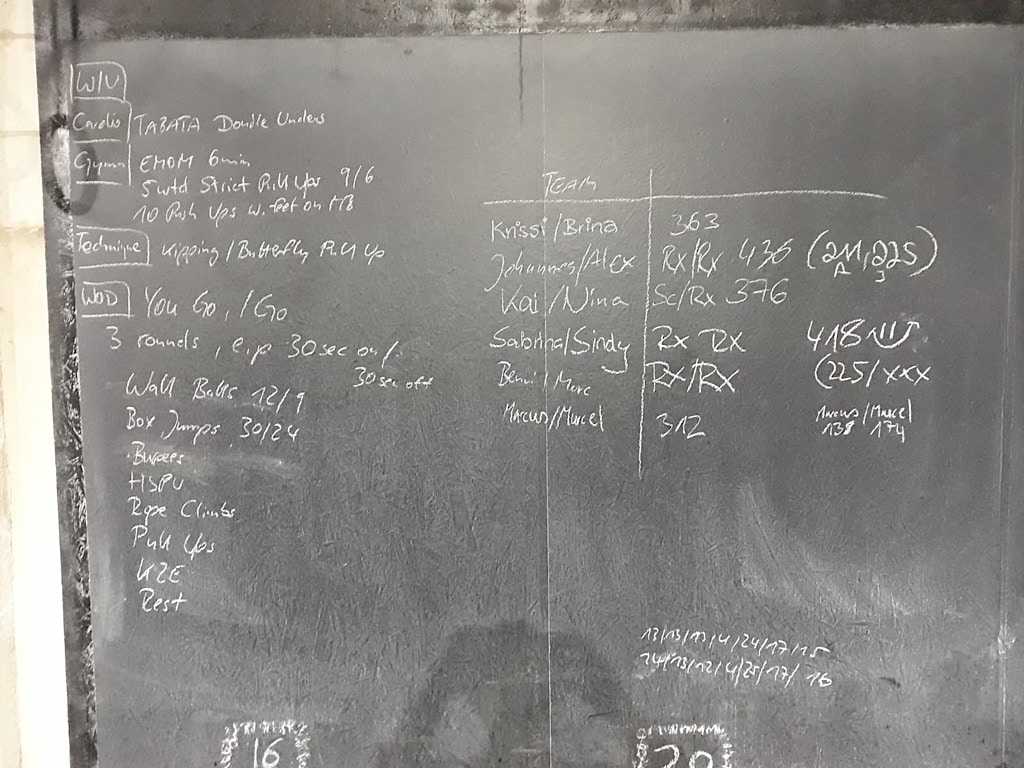 W/U
Cardio TABATA Double Unders
Gymn EMOM 6min
5 wtd Strict Pull Ups 9/6
10 Push Ups w. feet on MB
Technique Kipping/Butterfly Pull Up
WOD You Go, I Go
3 rounds, e.p 30sec on/
30sec off
Wall Balls 12/9
Box Jumps 30/24
Burpees
HSPU
Rope Climbs
Pull Ups
K2E
Rest
TEAM
Krissi/Brina 363
Johannes/Alex Rx/Rx 436 (211,225)
A J
Kai/Nina Sc/Rx 376
Sabrina/Sindy Rx Rx 418
Benni/Marc Rx/Rx (225/xxx
Marcus/Marcel 312 Marcus/Marcel
138 174
13/13/11/4/24/17/15
14/13/12/4/25/17/16
16
20